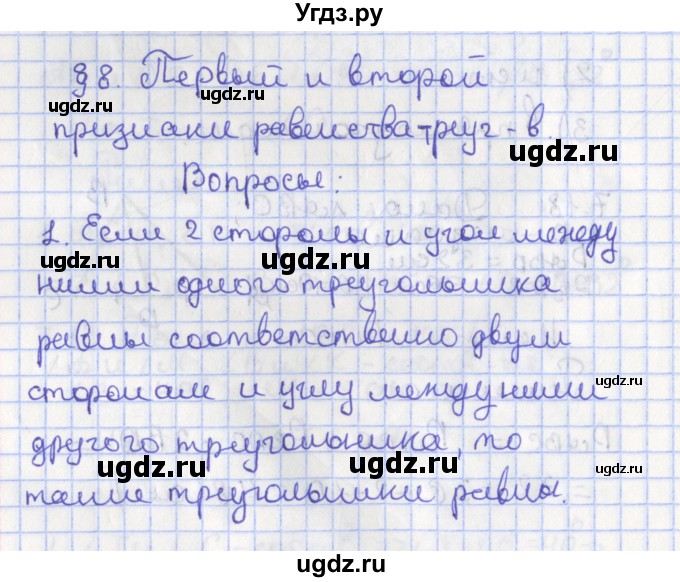 Угдз.ру
§8. Первый и второй
ugdz.ru
ugdz.ru
признаки равенства треуг-в.
ugdz.ru
Вопросы:
1. Если 2 стороны и угол между
ugdz.ru
ugdz.ru
ugdz.ru
ними одного треугольника
равны соответственно двум
сторонам и углу между ними
ugdz.ru
другого треугольника, то
ugdz.ru
ugdz.ru
ugdz.ru
такие треугольники равны.
ugdz.ru